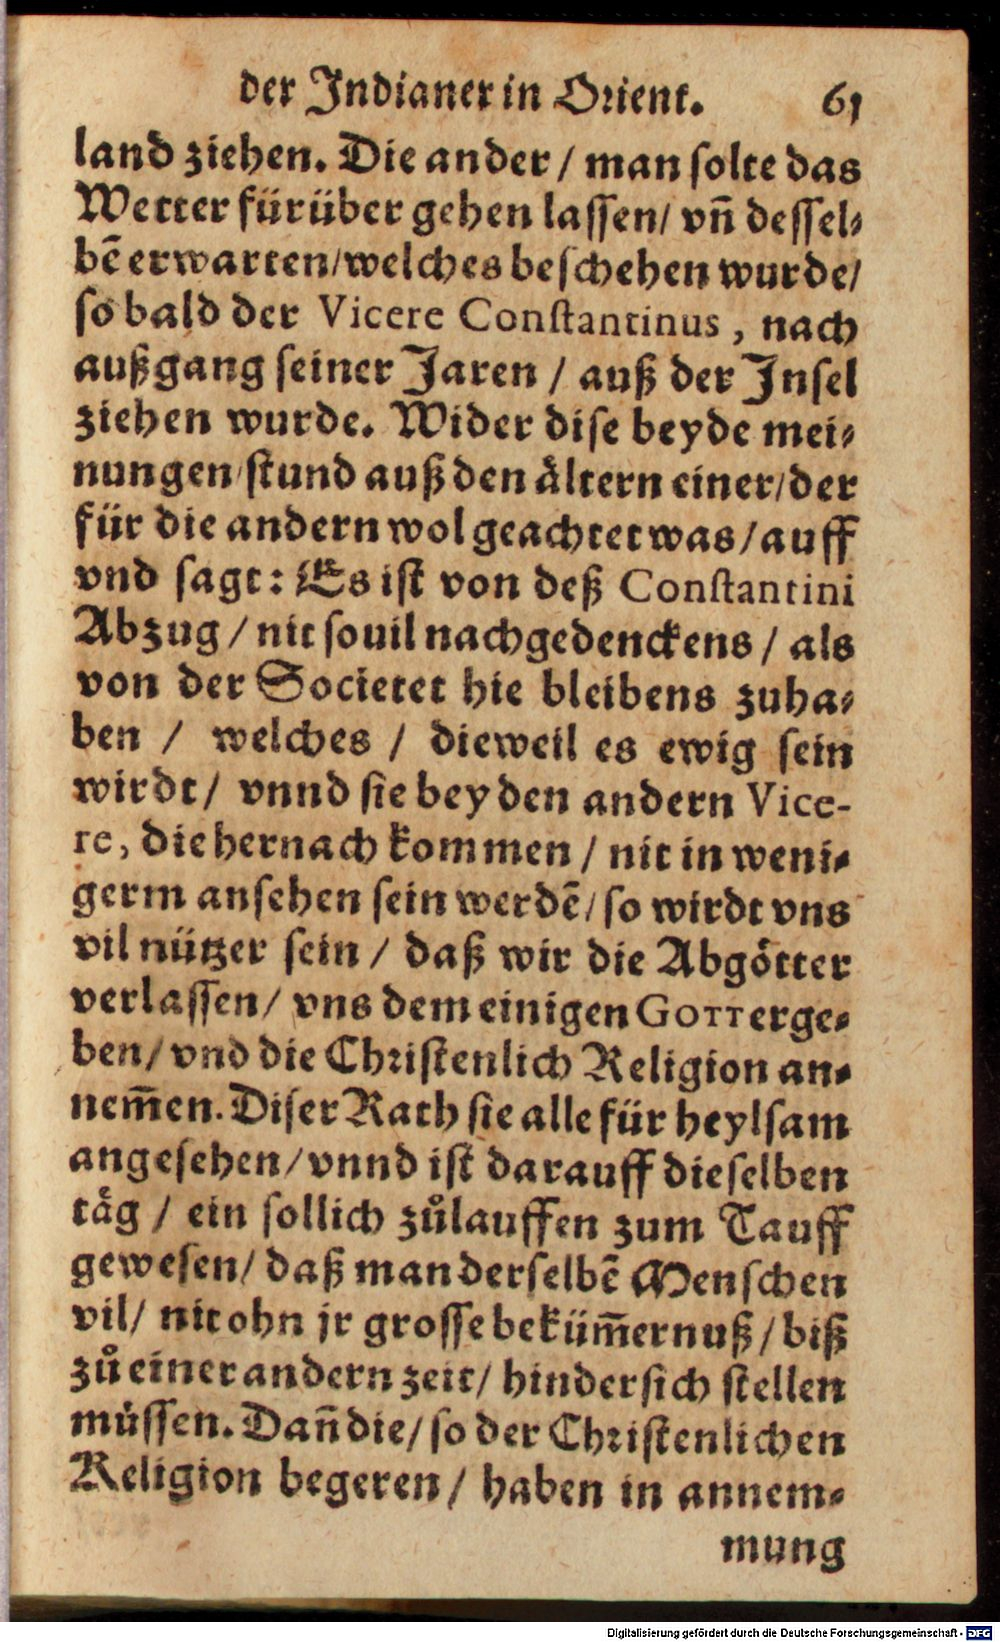 der Indianer in Orient. 61
land ziehen. Die ander / man solte das
Wetter fürüber gehen lassen / vñ dessel⸗
bẽ erwarten / welches beschehen wurde /
so bald der Vicere Constantinus, nach
außgang seiner Jaren / auß der Insel
ziehen wurde. Wider dise beyde mei⸗
nungen / stund auß den ältern einer / der
für die andern wol geachtet was / auff
vnd sagt: Es ist von deß Constantini
Abzug / nit souil nachgedenckens / als
von der Societet hie bleibens zuha⸗
ben / welches / dieweil es ewig sein
wirdt / vnnd sie bey den andern Vice-
re, die hernach kommen / nit in weni⸗
germ ansehen sein werdẽ / so wirdt vns
vil nützer sein / daß wir die Abgötter
verlassen / vns dem einigen GOTT erge⸗
ben / vnd die Christenlich Religion an⸗
nem̃en. Diser Rath sie alle für heylsam
angesehen / vnnd ist darauff dieselben
täg / ein sollich zůlauffen zum Tauff
gewesen / daß man derselbẽ Menschen
vil / nit ohn jr grosse beküm̃ernuß / biß
zů einer andern zeit / hindersich stellen
müssen. Dañ die / so der Christenlichen
Religion begeren / haben in annem⸗
mung
Digitalisierung gefördert durch die Deutsche Forschungsgemeinschaft - DFG